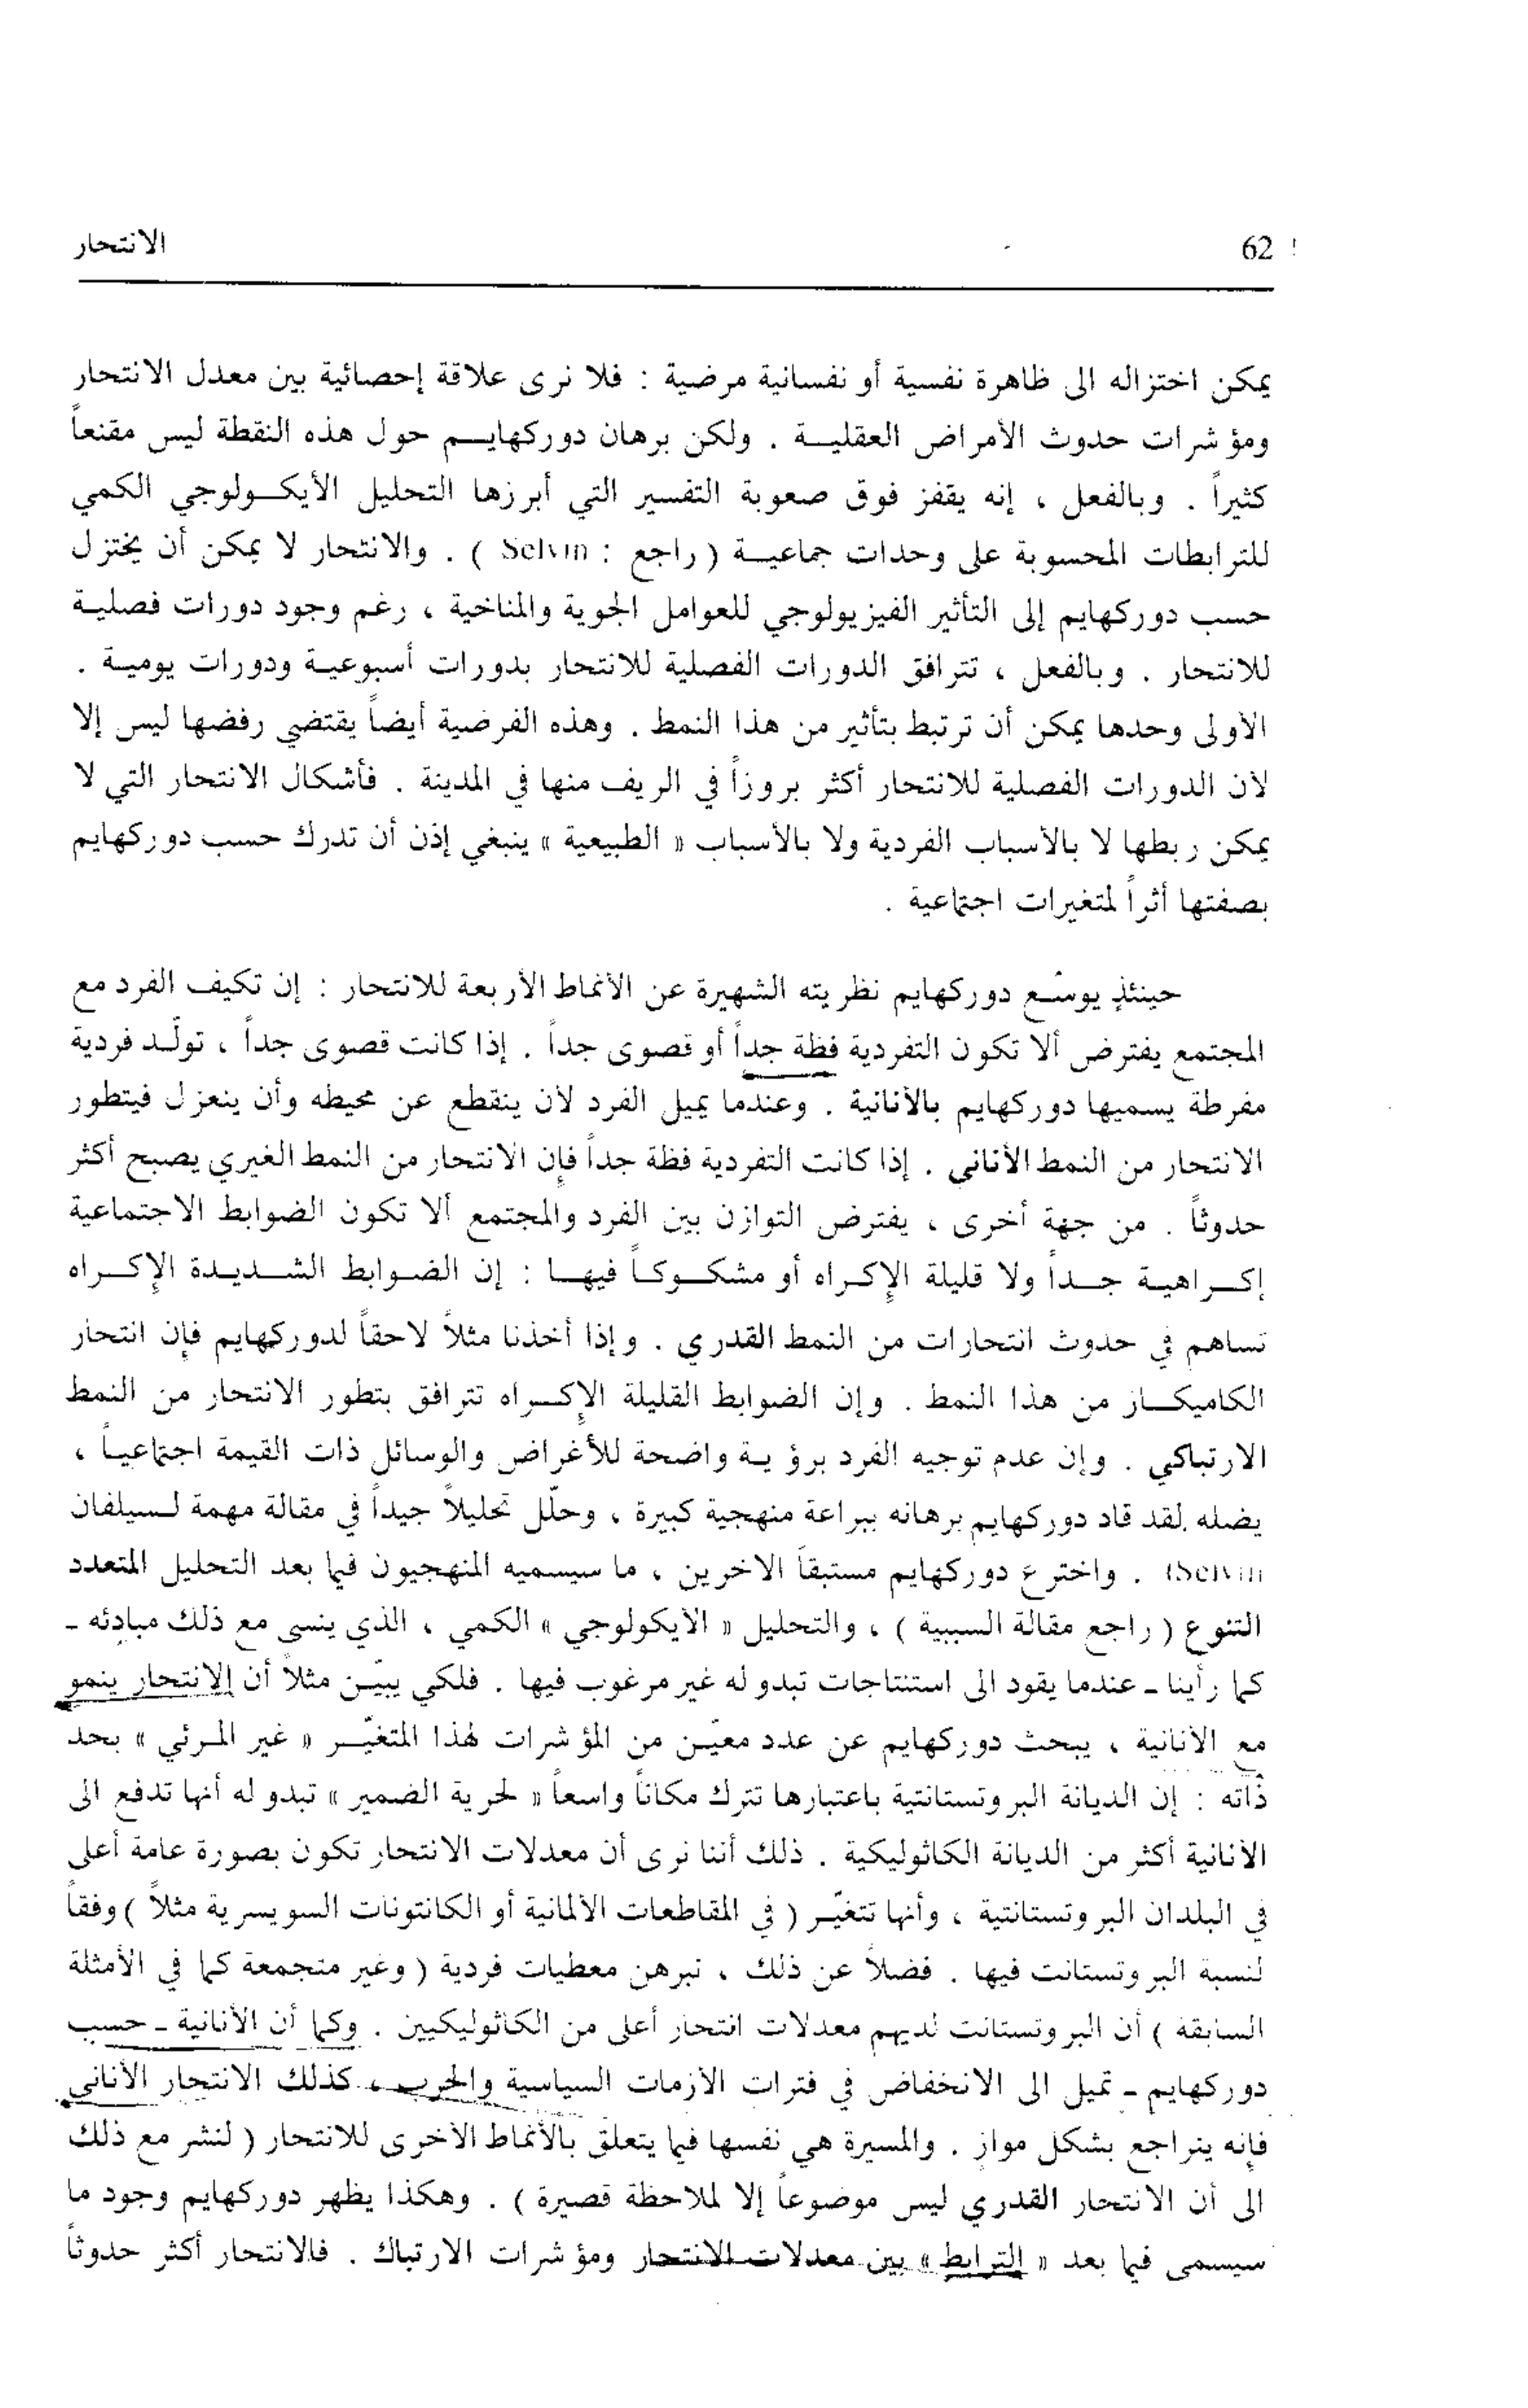 62
الانتحار
يمكن اختزاله الى ظاهرة نفسية أو نفسانية مرضية : فلا نرى علاقة إحصائية بين معدل الانتحار
ومؤشرات حدوث الأمراض العقلية . ولكن برهان دوركهايم حول هذه النقطة ليس مقنعاً
كثيراً . وبالفعل ، إنه يقفز فوق صعوبة التفسير التي أبرزها التحليل الأيكولوجي الكمي
للترابطات المحسوبة على وحدات جماعية ( راجع : Selvin ) . والانتحار لا يمكن أن يختزل
حسب دوركهايم إلى التأثير الفيزيولوجي للعوامل الجوية والمناخية ، رغم وجود دورات فصلية
للانتحار . وبالفعل ، تترافق الدورات الفصلية للانتحار بدورات أسبوعية ودورات يومية .
الأولى وحدها يمكن أن ترتبط بتأثير من هذا النمط . وهذه الفرضية أيضاً يقتضي رفضها ليس إلا
لأن الدورات الفصلية للانتحار أكثر بروزاً في الريف منها في المدينة . فأشكال الانتحار التي لا
يمكن ربطها لا بالأسباب الفردية ولا بالأسباب « الطبيعية » ينبغي إذن أن تدرك حسب دوركهايم
بصفتها أثراً لمتغيرات اجتماعية .
حينئذٍ يوسّع دوركهايم نظريته الشهيرة عن الأنماط الأربعة للانتحار : إن تكيف الفرد مع
المجتمع يفترض ألا تكون التفردية فظة جداً أو قصوى جداً . إذا كانت قصوى جداً ، تولّد فردية
مفرطة يسميها دوركهايم بالأنانية . وعندما يميل الفرد لأن ينقطع عن محيطه وأن ينعزل فيتطور
الانتحار من النمط الأناني . إذا كانت التفردية فظة جداً فإن الانتحار من النمط الغيري يصبح أكثر
حدوثاً . من جهة أخرى ، يفترض التوازن بين الفرد والمجتمع ألا تكون الضوابط الاجتماعية
إكراهية جداً ولا قليلة الإكراه أو مشكوكاً فيها : إن الضوابط الشديدة الإكراه
تساهم في حدوث انتحارات من النمط القدري . وإذا أخذنا مثلاً لاحقاً لدوركهايم فإن انتحار
الكاميكاز من هذا النمط . وإن الضوابط القليلة الإكراه تترافق بتطور الانتحار من النمط
الارتباكي . وإن عدم توجيه الفرد برؤية واضحة للأغراض والوسائل ذات القيمة اجتماعياً ،
يضله . لقد قاد دوركهايم برهانه ببراعة منهجية كبيرة ، وحلّل تحليلاً جيداً في مقالة مهمة لسيلفان
Selvin . واخترع دوركهايم مستبقاً الآخرين ، ما سيسميه المنهجيون فيما بعد التحليل المتعدد
التنوع ( راجع مقالة السببية ) ، والتحليل « الأيكولوجي » الكمي ، الذي ينسى مع ذلك مبادئه -
كما رأينا - عندما يقود الى استنتاجات تبدو له غير مرغوب فيها . فلكي يبيّن مثلاً أن الانتحار ينمو
مع الأنانية ، يبحث دوركهايم عن عدد معيّن من المؤشرات لهذا المتغيّر « غير المرئي » بحد
ذاته : إن الديانة البروتستانتية باعتبارها تترك مكاناً واسعاً « لحرية الضمير » تبدو له أنها تدفع الى
الأنانية أكثر من الديانة الكاثوليكية . ذلك أننا نرى أن معدلات الانتحار تكون بصورة عامة أعلى
في البلدان البروتستانتية ، وأنها تتغيّر ( في المقاطعات الألمانية أو الكانتونات السويسرية مثلاً ) وفقاً
لنسبة البروتستانت فيها . فضلاً عن ذلك ، تبرهن معطيات فردية ( وغير متجمعة كما في الأمثلة
السابقة ) أن البروتستانت لديهم معدلات انتحار أعلى من الكاثوليكيين . وكما أن الأنانية - حسب
دوركهايم - تميل الى الانخفاض في فترات الأزمات السياسية والحرب ، كذلك الانتحار الأناني
فإنه يتراجع بشكل موازٍ . والمسيرة هي نفسها فيما يتعلق بالأنماط الأخرى للانتحار ( لنشر مع ذلك
الى أن الانتحار القدري ليس موضوعاً إلا لملاحظة قصيرة ) . وهكذا يظهر دوركهايم وجود ما
سيسمى فيما بعد « الترابط » بين معدلات الانتحار ومؤشرات الارتباك . فالانتحار أكثر حدوثاً